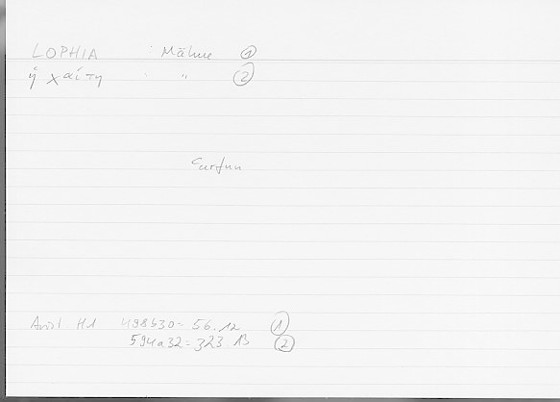 LOPHIA : Mähne ①
ἡ χαίτη : " ②
Arist. HA 498b30 = 56.12 ①
594a32 = 323.13 ②